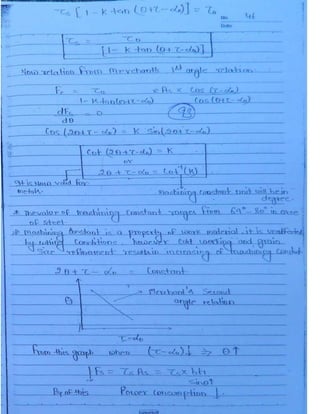 τs [1 - k tan (θ + τ - α0)] = τ0
No.
Date
τs = τ0
[1 - k tan (θ + τ - α0)]
Now relation From Merchants Ist angle relation
Fs = τ0 × As × Cos (τ - α0)
1 - K tan(θ+τ-α0) Cos (θ+τ-α0)
dFs = 0
dθ
93
Cos (2θ+τ-α0) = K Sin(2θ+τ-α0)
Cot (2θ+τ-α0) = K
or
2θ + τ - α0 = Cot⁻¹(K)
It is now valid for
metals.
machining constant unit will be in
degree.
* The value of machining constant ranges from 69° - 80° in case
of steel.
* Machining Constant is a property of work material, it is unaffected
by cutting conditions, however cold working and grain
size refinement results in increasing of machining constant
2θ + τ - α0 = Constant
θ
Merchant's Second
angle relation
τ - α0
From this graph when (τ-α0)↓ ⇒ θ↑
↓Fs = τs As = τs × bt1
sinθ↑
By of this Power consumption ↓